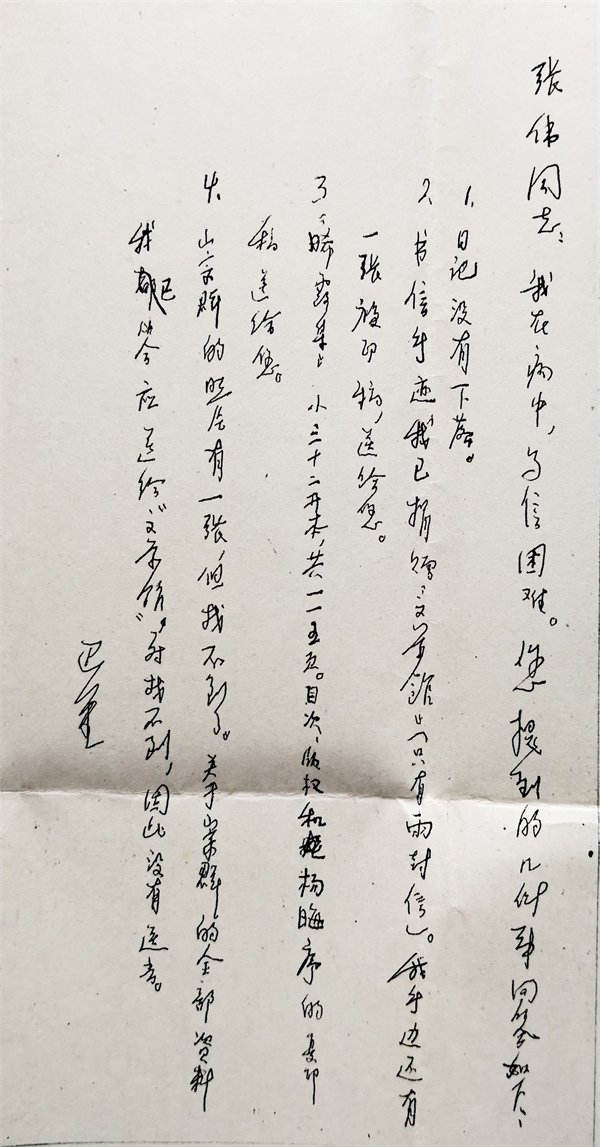 张伟同志：我在病中，写信困难。您提到的几件事回答如下：
1、日记没有下落。
2、书信手迹，我已捐赠“文学馆”（只有两封信）。我手边还有
一张复印稿，送给您。
3、《晞露集》小三十二开本，共一一五页。目次、版权和杨晦序的复印
稿送给您。
4、山宗群的照片有一张，但找不到了。关于崇群的全部资料
我都已答应送给“文学馆”，可找不到，因此没有送去。
巴金